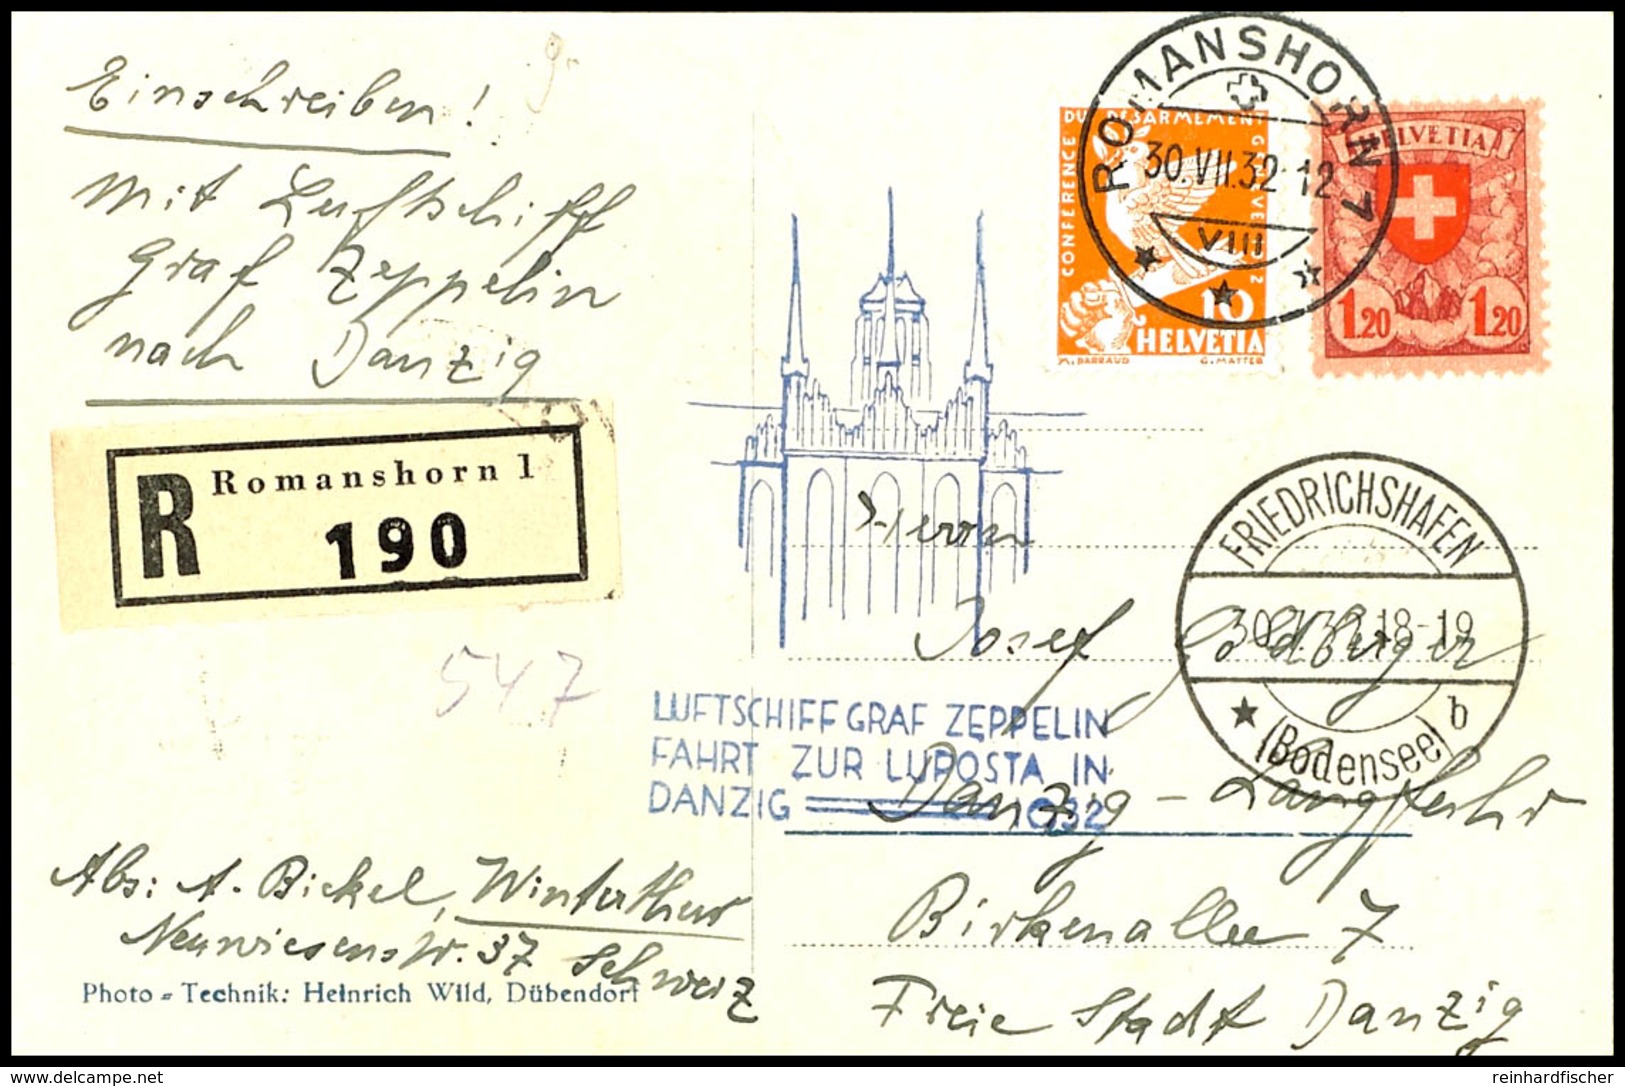 Einschreiben!
Mit Luftschiff
Graf Zeppelin
nach Danzig
R Romanshorn 1
190
547
CONFÉRENCE DU DÉSARMEMENT GENÈVE 1932
10
HELVETIA
M. BARRAUD G. MATTER
ROMANSHORN
30.VII.32-12
VIII
HELVETIA
1.20 1.20
FRIEDRICHSHAFEN
30.7.32.18-19
(Bodensee) b
Herrn
Josef Goldberger
Danzig-Langfuhr
Birkenallee 7
Freie Stadt Danzig
LUFTSCHIFF GRAF ZEPPELIN
FAHRT ZUR LUPOSTA IN
DANZIG 1932
Abs: A. Bickel, Winterthur
Neuwiesenstr. 37 Schweiz
Photo-Technik: Heinrich Wild, Dübendorf
www.delcampe.net
reinhardfischer